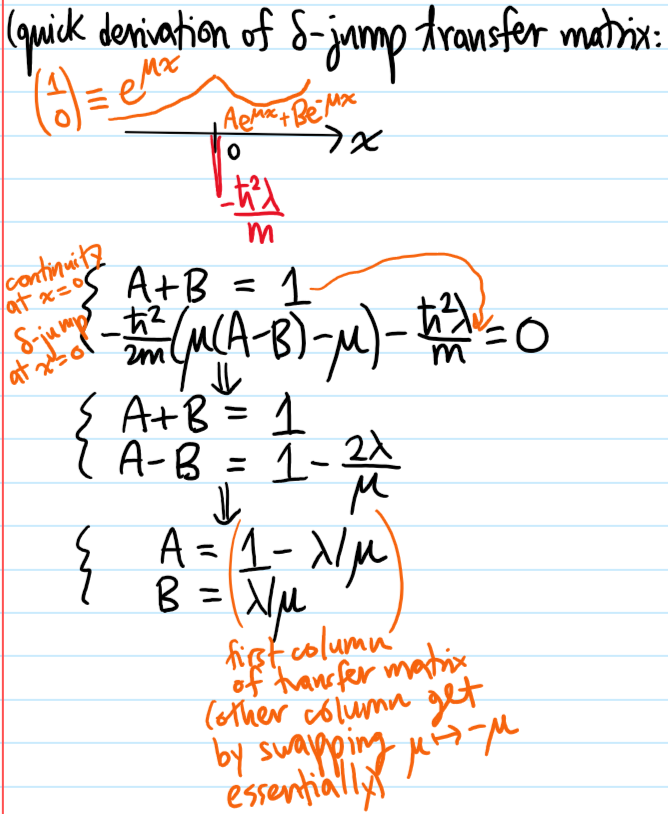 (quick derivation of δ-jump transfer matrix:
(1 0) ≡ e^{μx}
Ae^{μx}+Be^{-μx}
0
x
-ħ²λ/m
continuity at x=0
A+B = 1
δ-jump at x=0
-ħ²/2m (μ(A-B)-μ) - ħ²λ/m = 0
⇓
A+B = 1
A-B = 1 - 2λ/μ
⇓
A = 1 - λ/μ
B = λ/μ
first column
of transfer matrix
(other column get
by swapping μ↦-μ
essentially)